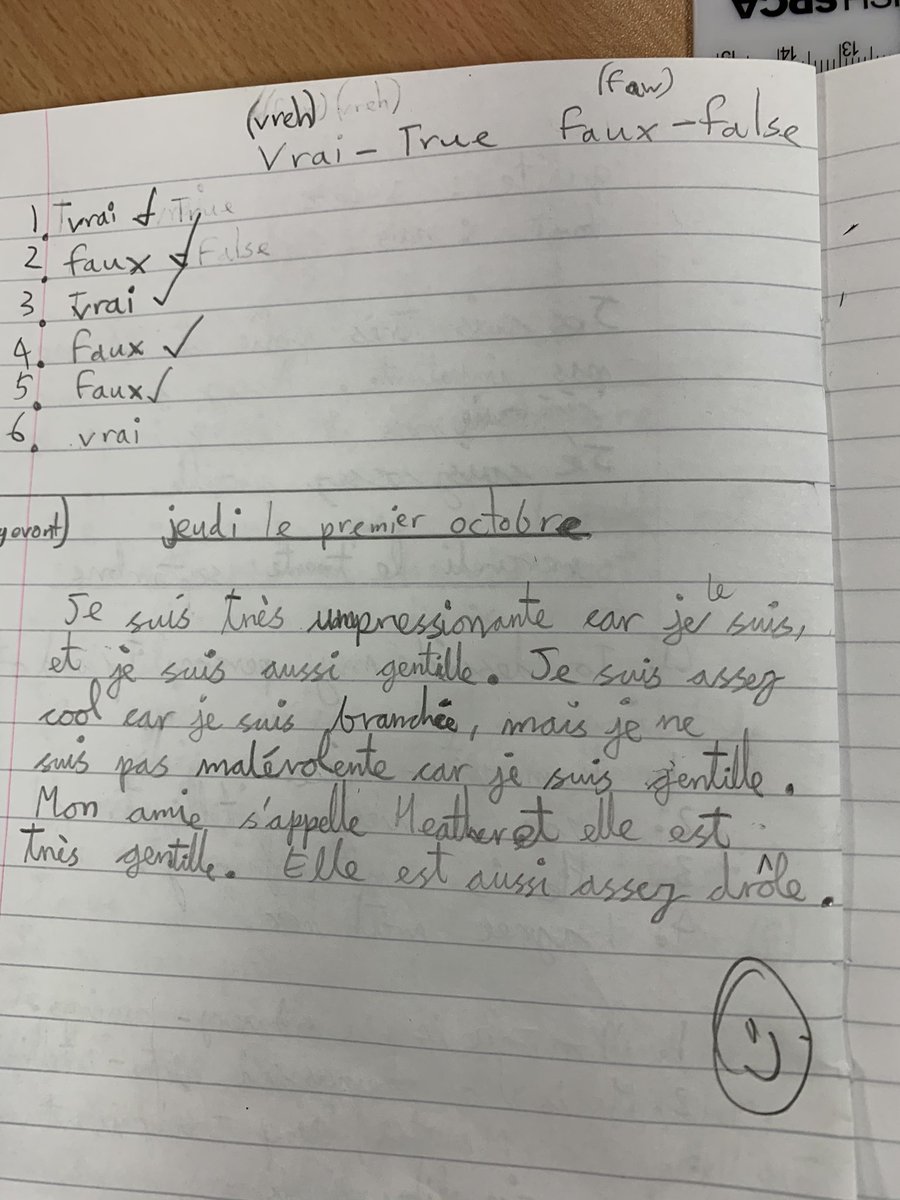 SPCA
15 14 13
(vreh) (vreh) (faw)
Vrai - True faux - false
1. vrai True
2. faux ✓ False
3. vrai ✓
4. Faux ✓
5. Faux ✓
6. vrai
jeudi le premier octobre
Je suis très impressionante car je le suis,
et je suis aussi gentille. Je suis assez
cool car je suis branchée, mais je ne
suis pas malévolente car je suis gentille.
Mon amie s'appelle Heather et elle est
très gentille. Elle est aussi assez drôle.